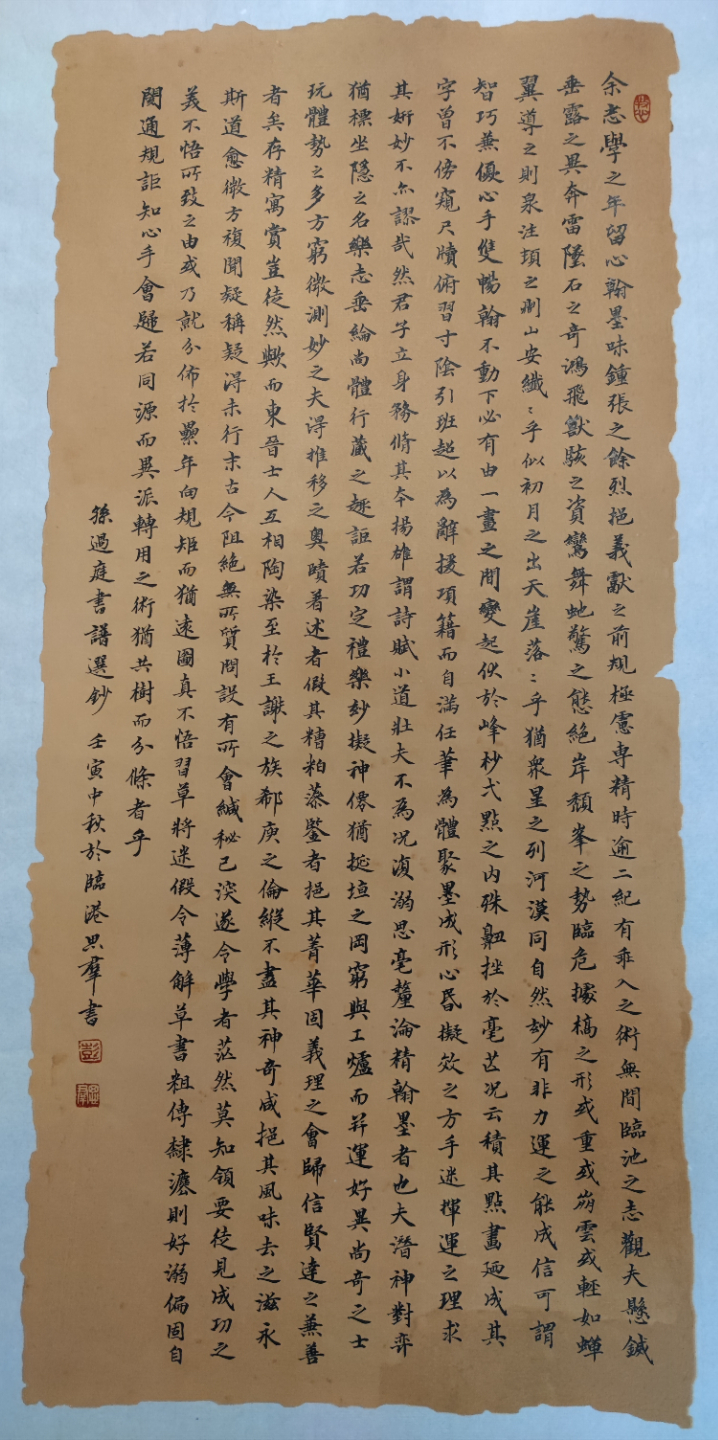 余志學之年留心翰墨味鍾張之餘烈挹羲獻之前規極慮專精時逾二紀有乖入之術無間臨池之志觀夫懸鍼
垂露之異奔雷墜石之奇鴻飛獸駭之資鸞舞蛇驚之態絕岸頹峯之勢臨危據槁之形或重或崩雲或輕如蟬
翼導之則泉注頓之則山安纖〻乎似初月之出天崖落〻乎猶衆星之列河漢同自然玅有非力運之能成信可謂
智巧兼優心手雙暢翰不動下必有由一畫之間變起伏於峰杪弌點之内殊衄挫於毫芒况云積其點畫廼成其
字曾不傍窺尺牘俯習寸陰引班超以為辭援項籍而自滿任筆為體聚墨成形心昏擬效之方手迷揮運之理求
其姸妙不亦謬哉然君子立身務脩其本揚雄謂詩賦小道壯夫不為况復溺思毫釐淪精翰墨者也夫潛神對弈
猶標坐隐之名樂志垂綸尚體行藏之趣詎若功定禮樂玅擬神僊猶挻埴之罔窮與工爐而并運好異尚奇之士
玩體勢之多方窮微測妙之夫得推移之奧賾著述者假其糟粕藻鑒者挹其菁華固義理之會歸信賢達之兼善
者矣存精寓賞豈徒然歟而東晉士人互相陶染至於王謝之族郗庾之倫縱不盡其神奇咸挹其風味去之滋永
斯道愈微方複聞疑稱疑得末行末古今阻絕無所質問設有所會緘秘已深遂令學者茫然莫知領要徒見成功之
美不悟所致之由或乃就分佈於累年向規矩而猶遠圖真不悟習草將迷假令薄解草書粗傳隸灋則好溺偏固自
閡通規詎知心手會歸若同源而異派轉用之術猶共樹而分條者乎
孫過庭書譜選鈔 壬寅中秋於臨港思羣書